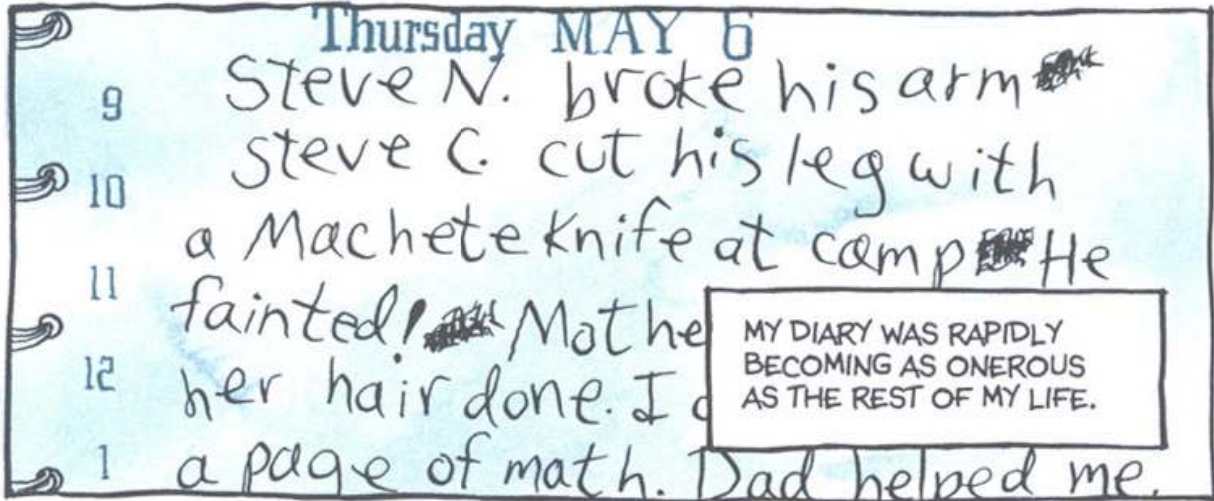 Thursday MAY 6
9
Steve N. broke his arm
10
steve C. cut his leg with
a Machete knife at camp He
11
fainted! Mothe
12
her hair done. I
1
a page of math. Dad helped me.
MY DIARY WAS RAPIDLY
BECOMING AS ONEROUS
AS THE REST OF MY LIFE.